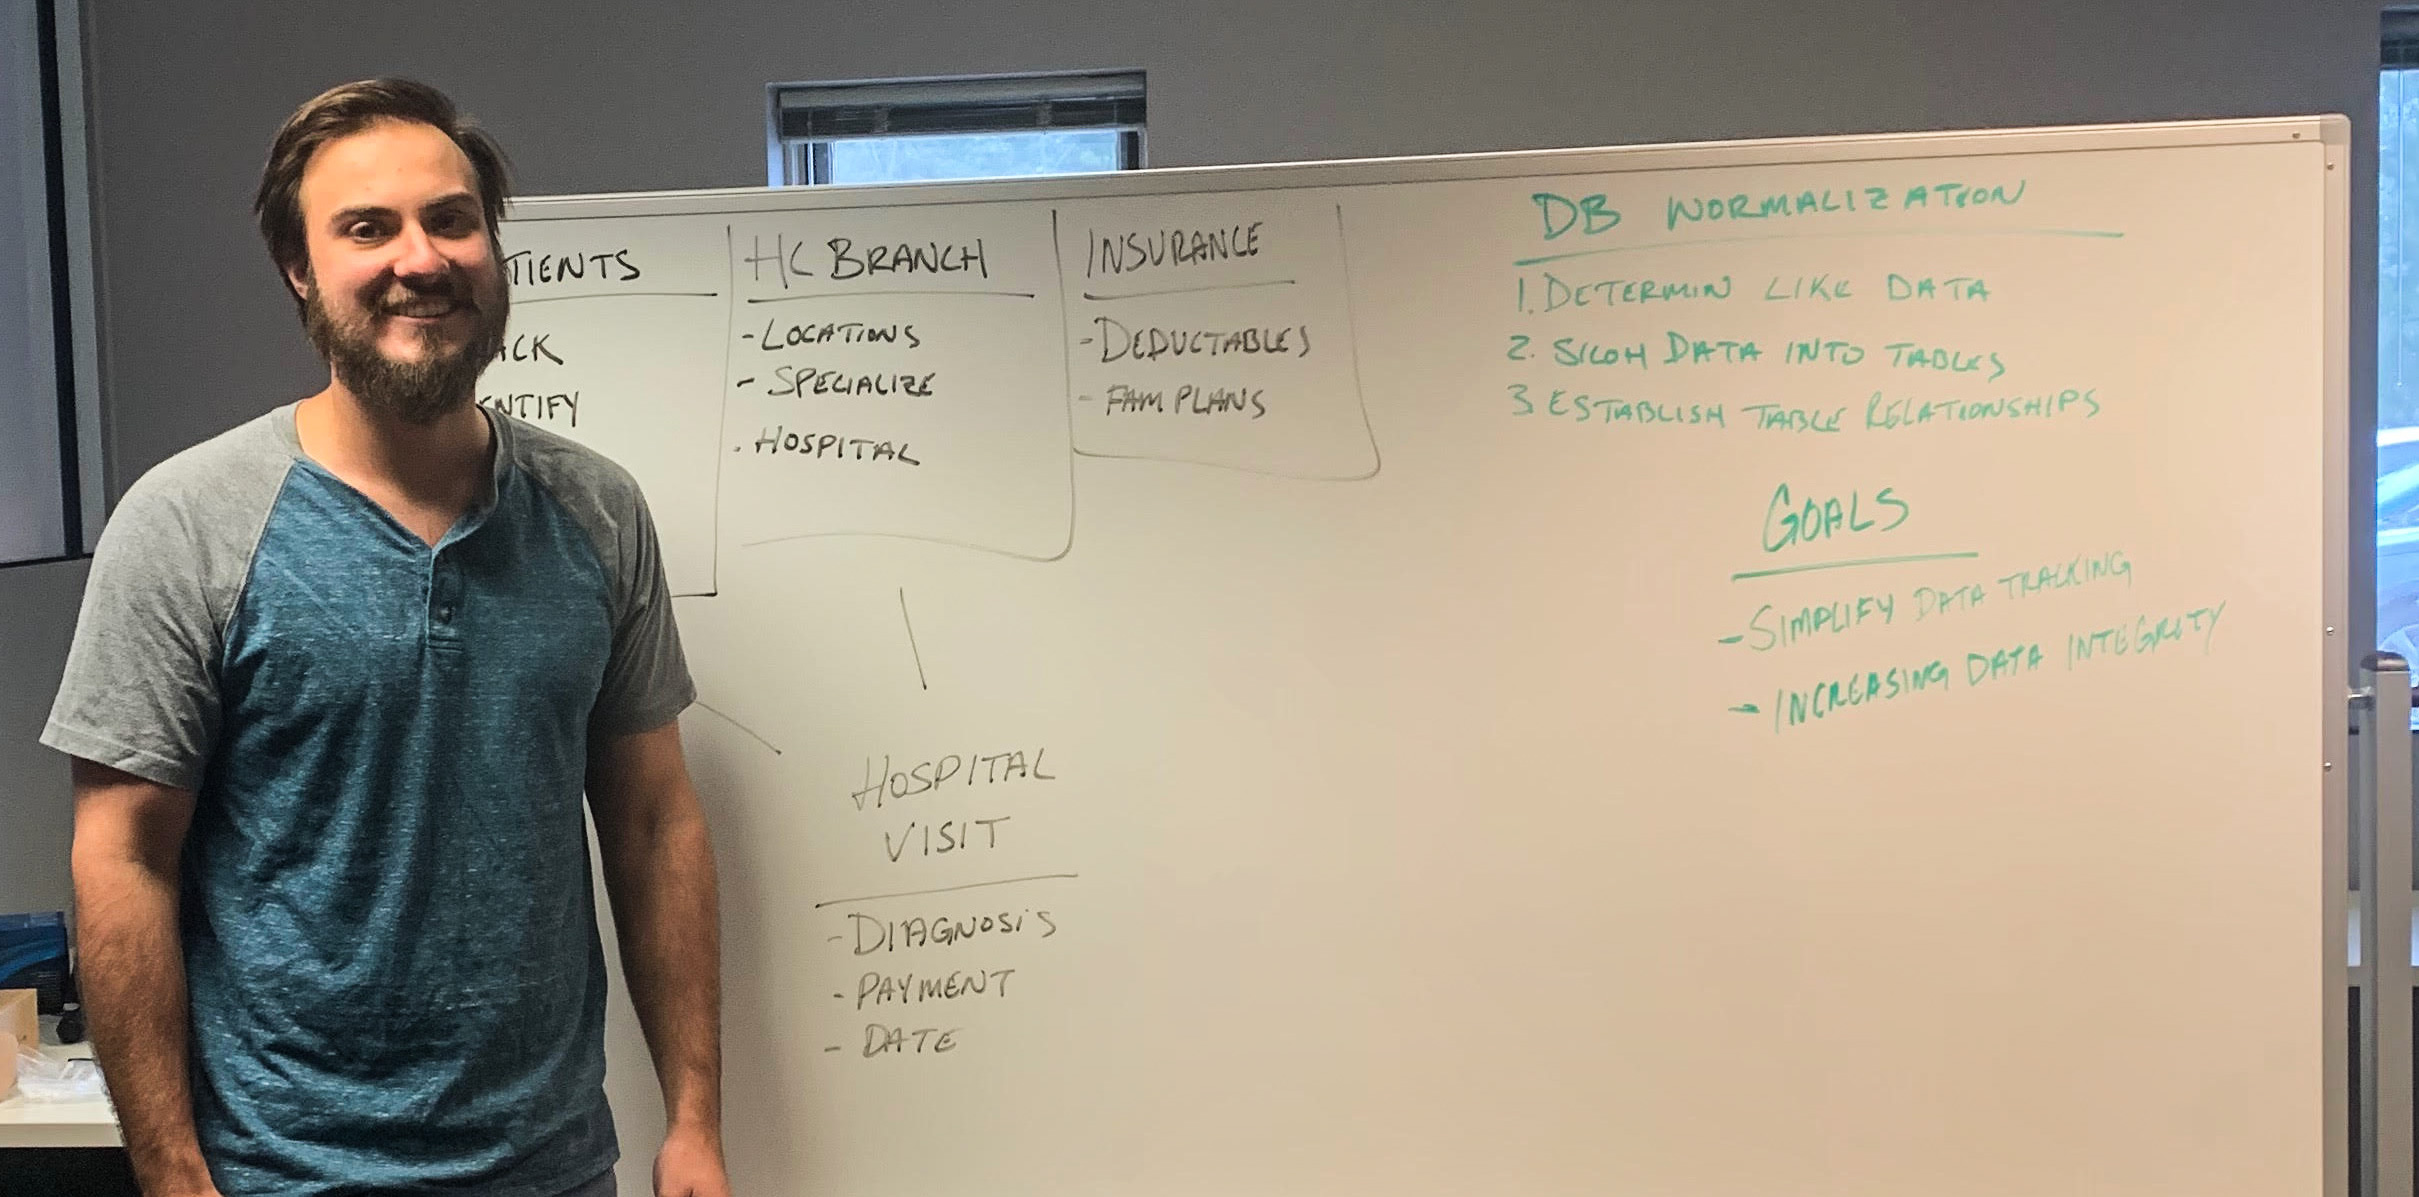 TIENTS
ACK
ENTIFY
HC BRANCH
-LOCATIONS
- SPECIALIZE
. HOSPITAL
INSURANCE
-DEDUCTABLES
- FAM PLANS
HOSPITAL
VISIT
-DIAGNOSIS
- PAYMENT
- DATE
DB NORMALIZATION
1. DETERMIN LIKE DATA
2. SILOH DATA INTO TABLES
3 ESTABLISH TABLE RELATIONSHIPS
GOALS
-SIMPLIFY DATA TRACKING
- INCREASING DATA INTEGRITY